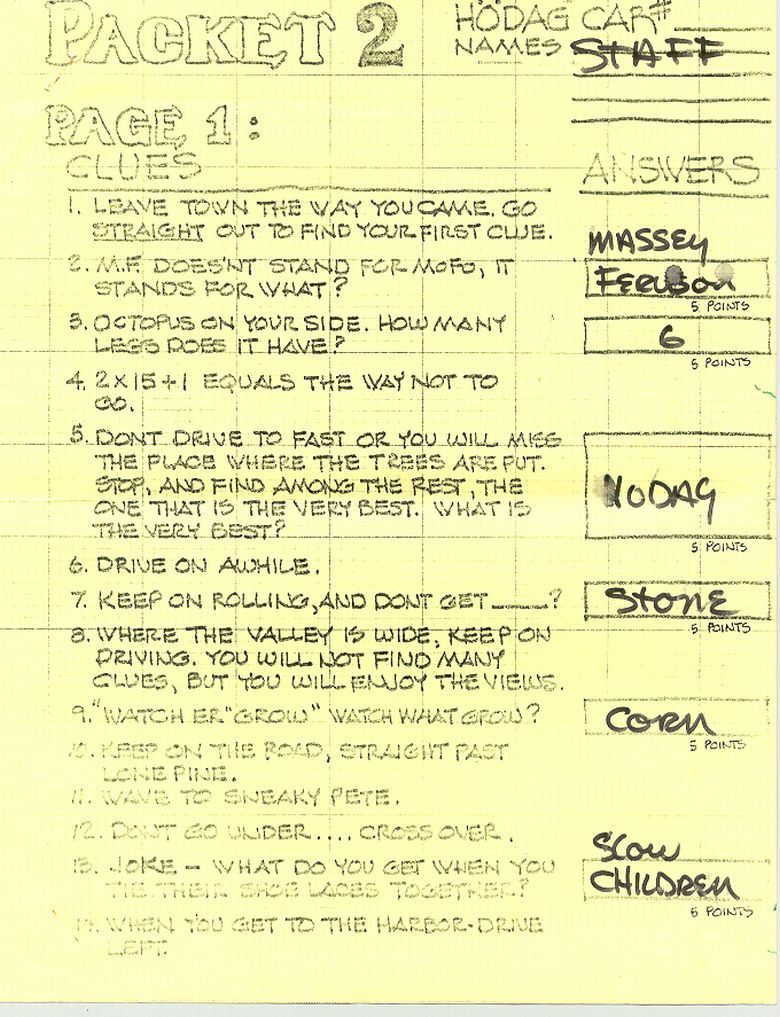 PACKET 2
HODAG CAR#
NAMES STAFF
PAGE 1:
CLUES
ANSWERS
1. LEAVE TOWN THE WAY YOU CAME. GO
STRAIGHT OUT TO FIND YOUR FIRST CLUE.
MASSEY
2. M.F. DOES'NT STAND FOR MOFO, IT
STANDS FOR WHAT?
FERUSON
5 POINTS
3. OCTOPUS ON YOUR SIDE. HOW MANY
LEGS DOES IT HAVE?
6
5 POINTS
4. 2 x 15 + 1 EQUALS THE WAY NOT TO
GO.
5. DONT DRIVE TO FAST OR YOU WILL MISS
THE PLACE WHERE THE TREES ARE PUT.
STOP, AND FIND AMONG THE REST, THE
ONE THAT IS THE VERY BEST. WHAT IS
THE VERY BEST?
HODAG
5 POINTS
6. DRIVE ON AWHILE.
7. KEEP ON ROLLING, AND DONT GET ____?
STONE
5 POINTS
8. WHERE THE VALLEY IS WIDE, KEEP ON
DRIVING. YOU WILL NOT FIND MANY
CLUES, BUT YOU WILL ENJOY THE VIEWS.
9. "WATCH ER "GROW" WATCH WHAT GROW?
CORN
5 POINTS
10. KEEP ON THE ROAD, STRAIGHT PAST
LONE PINE.
11. WAVE TO SNEAKY PETE.
12. DONT GO UNDER.... CROSS OVER.
13. JOKE – WHAT DO YOU GET WHEN YOU
TIE THEIR SHOE LACES TOGETHER?
SLOW
CHILDREN
5 POINTS
14. WHEN YOU GET TO THE HARBOR-DRIVE
LEFT.